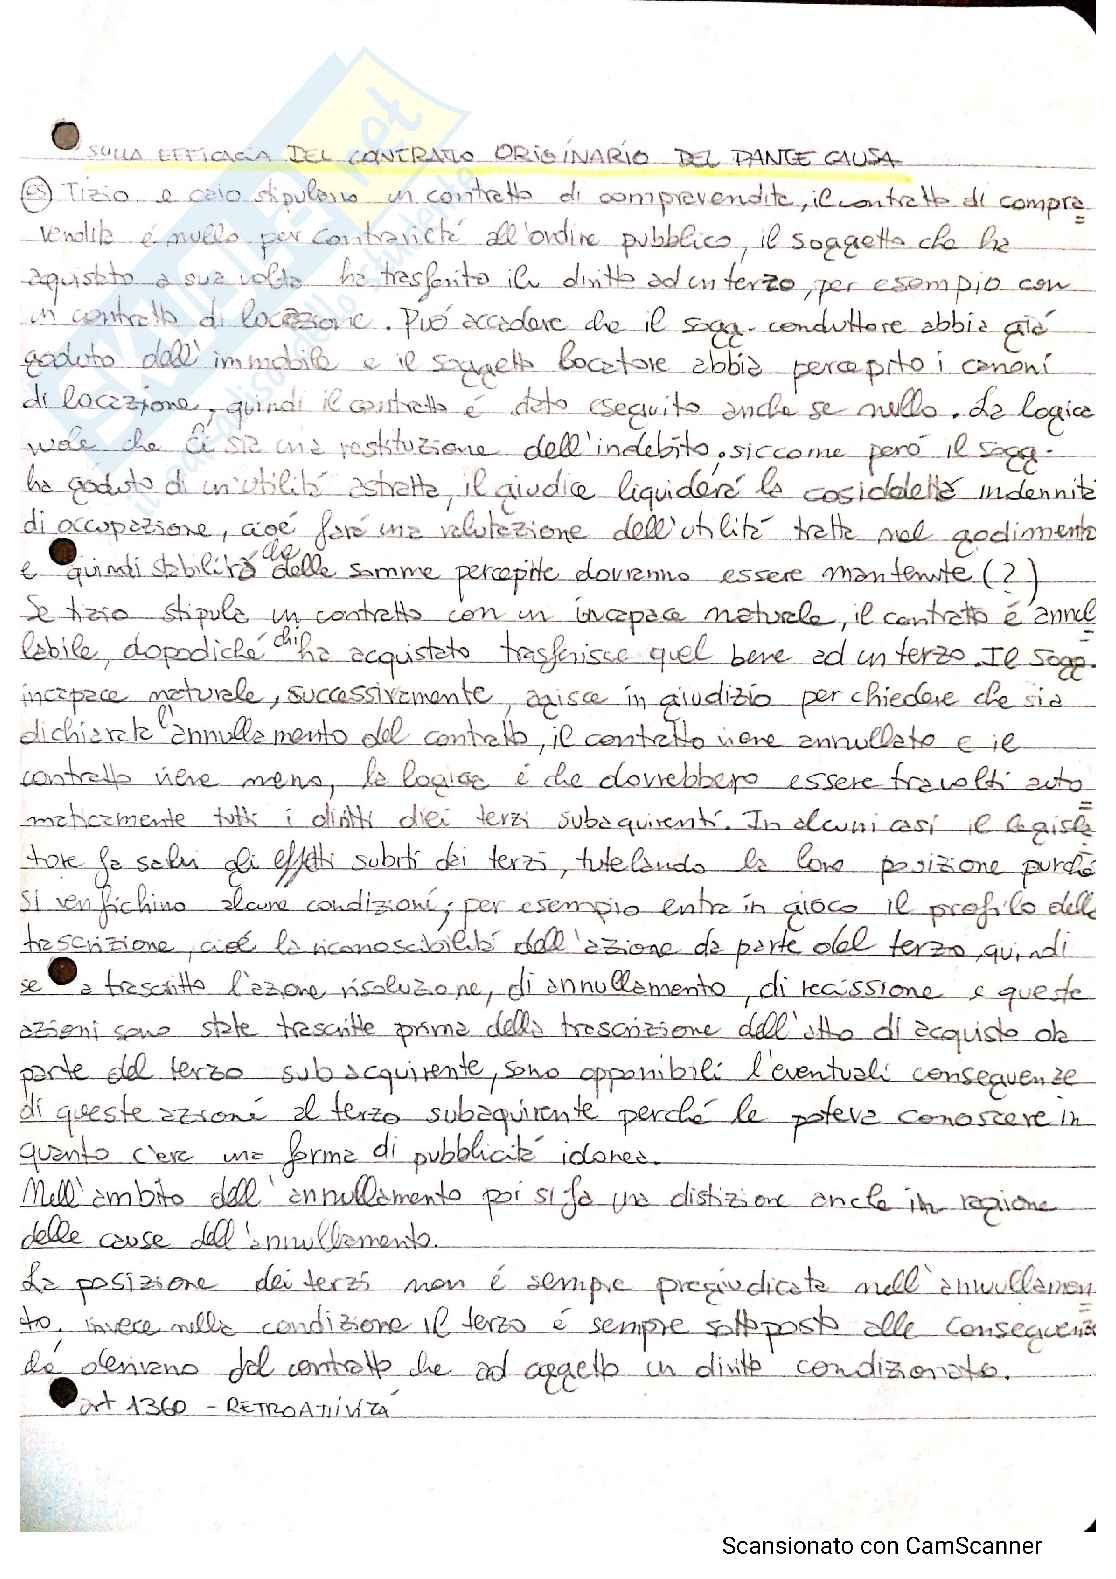 SULLA EFFICACIA DEL CONTRATTO ORIGINARIO DEL DANTE CAUSA
ES Tizio e caio stipulano un contratto di compravendita, il contratto di compra=
vendita é nullo per contrarietá all'ordine pubblico, il soggetto che ha
aquistato a sua volta ha trasferito il diritto ad un terzo, per esempio con
un contratto di locazione. Puó accadere che il sogg. conduttore abbia giá
goduto dell'immobile e il soggetto locatore abbia percepito i canoni
di locazione, quindi il contratto é stato eseguito anche se nullo. La logica
vuole che ci sia una restituzione dell'indebito, siccome peró il sogg.
ha goduto di un'utilitá astratta, il giudice liquiderá la cosiddetta indennitá
di occupazione, cioé fará una valutazione dell'utilitá tratta nel godimento
e quindi stabilirá che delle somme percepite dovranno essere mantenute (?)
Se tizio stipula un contratto con un incapace naturale, il contratto é annul=
labile, dopodiché chi ha acquistato trasferisce quel bene ad un terzo. Il sogg.
incapace naturale, successivamente, agisce in giudizio per chiedere che sia
dichiarata l'annullamento del contratto, il contratto viene annullato e il
contratto viene meno, la logica é che dovrebbero essere travolti auto=
maticamente tutti i diritti dei terzi subaquirenti. In alcuni casi il legisla=
tore fa salvi gli effetti subiti dei terzi, tutelando la loro posizione purché
si verifichino alcune condizioni; per esempio entra in gioco il profilo della
trascrizione, cioé la riconoscibilitá dell'azione da parte del terzo, quindi
se a trascritto l'azione risoluzione, di annullamento, di recissione e queste
azioni sono state trascritte prima della trascrizione dell'atto di acquisto da
parte del terzo subacquirente, sono opponibili l'eventuali conseguenze
di queste azioni al terzo subaquirente perché le poteva conoscere in
quanto c'era una forma di pubblicitá idonea.
Nell'ambito dell'annullamento poi si fa una distizione anche in ragione
delle cause dell'annullamento.
La posizione dei terzi non é sempre pregiudicata nell'annullamen=
to, invece nella condizione il terzo é sempre sottoposto alle conseguenze
che derivano dal contratto che ad oggetto un diritto condizionato.
art 1360 - RETROATTIVITÁ
Scansionato con CamScanner